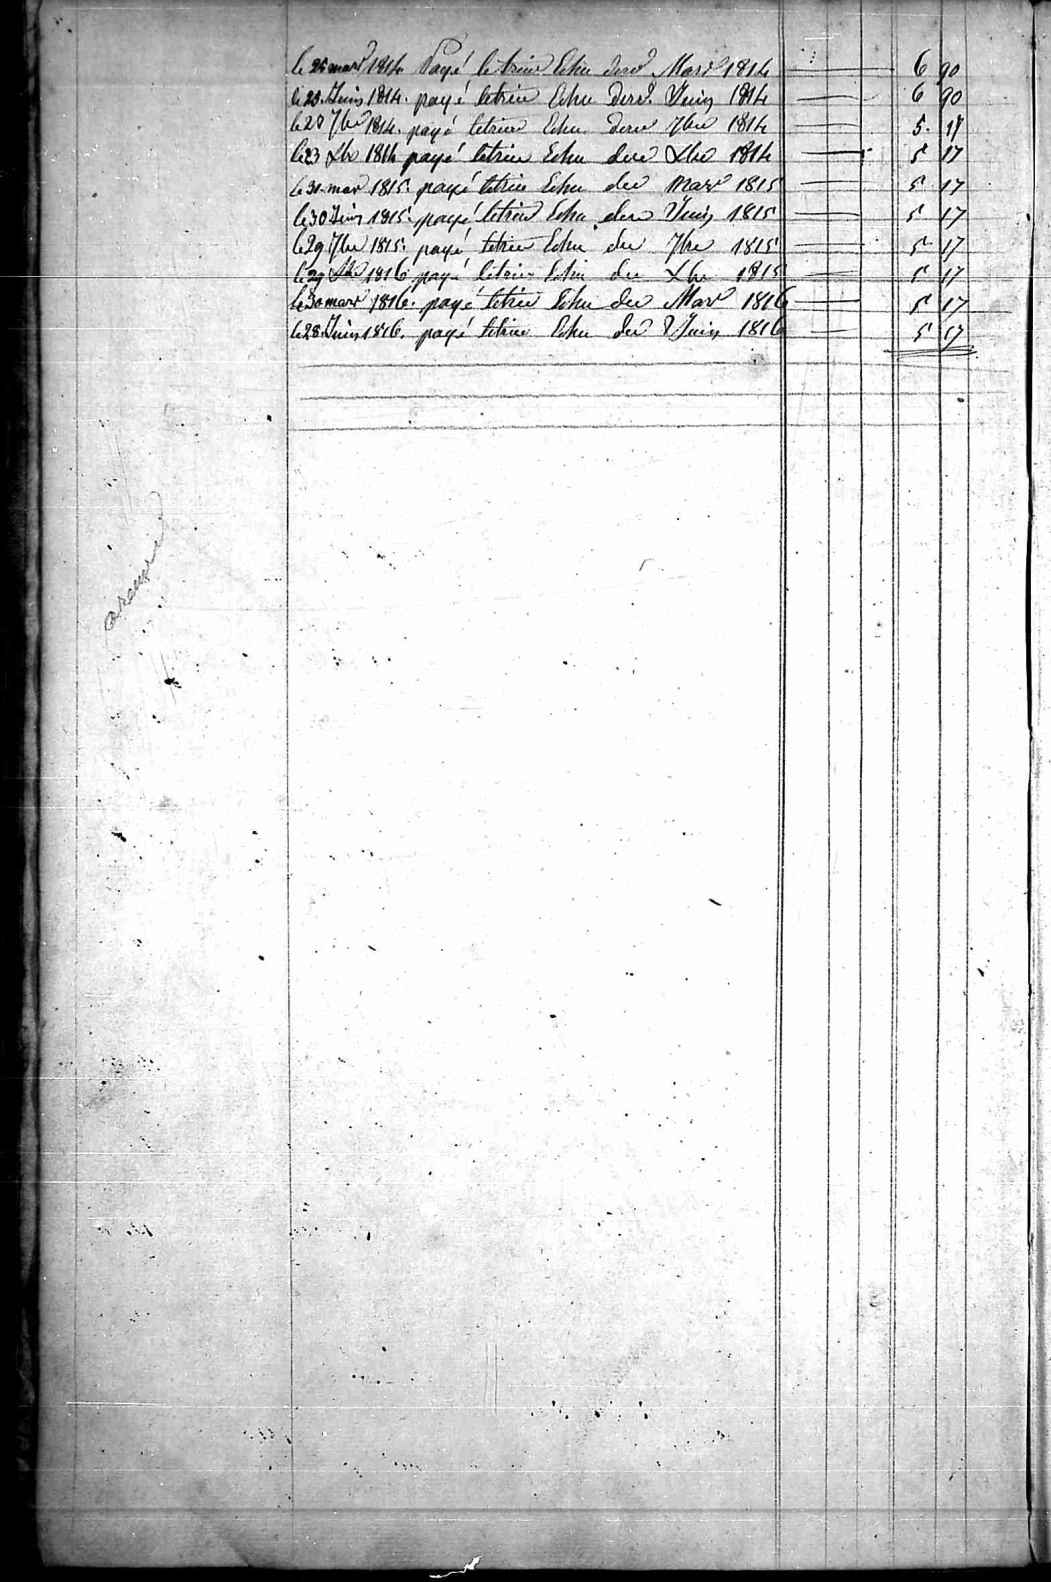 le 25 mars 1814 Payé le trim Echu der Mars 1814 6 90
le 23 Juin 1814. payé letrim Echu derd. Juin 1814 6 90
le 20 7bre 1814. payé letrim Echu dern 7bre 1814 5. 17
le 23 Xbre 1814 payé letrim Echu der Xbre 1814 5 17
le 31 mar 1815. payé letrim Echu der Mars 1815 5 17
le 30 Juin 1815. payé letrim Echu der Juin 1815 5 17
le 29 7bre 1815. payé letrim Echu der 7bre 1815 5 17
le 29 Xbre 1816 payé letrim Echu der Xbre 1815 5 17
le 30 mars 1816. payé letrim Echu der Mars 1816 5 17
le 28. Juin 1816. payé letrim Echu der Juin 1816 5 17